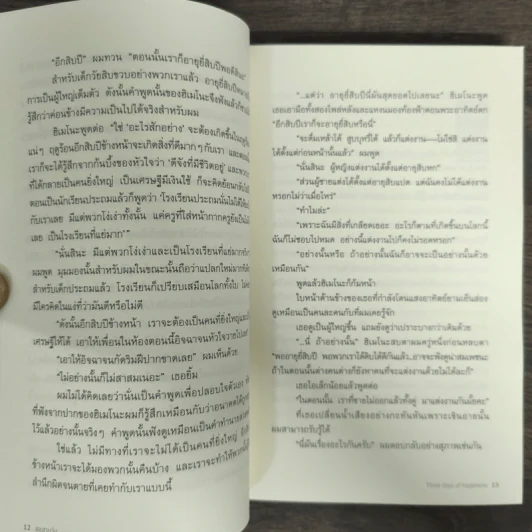 "อีกสิบปี" ผมทวน "ตอนนั้นเราก็อายุยี่สิบพอดีสินะ"
สำหรับเด็กวัยสิบขวบอย่างพวกเราแล้ว อายุยี่สิบ
การเป็นผู้ใหญ่เต็มตัว ดังนั้นคำพูดนั้นของฮิเมโนะจึงฟังแล้ว
รู้สึกว่าค่อนข้างมีความเป็นไปได้จริงสำหรับผม
ฮิเมโนะพูดต่อ "ใช่ 'อะไรสักอย่าง' จะต้องเกิดขึ้นในฤดู
แน่ๆ ฤดูร้อนอีกสิบปีข้างหน้าจะเกิดสิ่งที่ดีมากๆ กับเรา และ
เราก็จะได้รู้สึกจากก้นบึ้งของหัวใจว่า 'ดีจังที่มีชีวิตอยู่' และ
ที่ได้กลายเป็นคนยิ่งใหญ่ เป็นเศรษฐีมีเงินใช้ ก็จะคิดย้อน
ตอนเป็นนักเรียนประถมแล้วก็พูดว่า 'โรงเรียนประถมนั่นไม่ได้ให้
กับเราเลย มีแต่พวกโง่เง่าทั้งนั้น แค่ครูที่ใส่หน้ากาก
เลย เป็นโรงเรียนที่แย่มาก'"
"นั่นสินะ มีแต่พวกโง่เง่าและเป็นโรงเรียนที่แย่มาก
ผมพูด มุมมองนั้นสำหรับผมในขณะนั้นถือว่าแปลกใหม่มาก
เด็กประถมแล้ว โรงเรียนก็เปรียบเสมือนโลกทั้งใบ
มีใครคิดในแง่ที่ว่ามันดีหรือไม่ดี
"ดังนั้นอีกสิบปีข้างหน้า เราจะต้องเป็นคนที่ยิ่งใหญ่
เศรษฐีให้ได้ เอาให้เพื่อนในห้องตอนนี้อิจฉาจนหัวใจวาย
"เอาให้อิจฉาจนกัดริมฝีปากขาดเลย" ผมเห็นด้วย
"ไม่อย่างนั้นก็ไม่สาสมเนอะ" เธอยิ้ม
ผมไม่ได้คิดเลยว่านั่นเป็นคำพูดเพื่อปลอบใจตัวเอง
ที่ฟังจากปากของฮิเมโนะผมก็รู้สึกเหมือนกับว่าอนาคต
ไว้แล้วอย่างนั้นจริงๆ คำพูดนั้นฟังดูเหมือน
ใช่แล้ว ไม่มีทางที่เราจะไม่ได้เป็นคนที่ยิ่งใหญ่
ข้างหน้าเราจะได้มองพวกนั้นคืนบ้าง และเราจะทำให้
สำนึกผิดจนตายที่เคยทำกับเราแบบนี้
12
"...แต่ว่า อายุยี่สิบปีนี่มันสุดยอดไปเลยนะ" ฮิเมโนะพูด
เธอเอามือทั้งสองไพล่หลังและแหงนมองท้องฟ้าตอนพระอาทิตย์ตก
"อีกสิบปีเราก็จะอายุยี่สิบหรือนี่"
"จะดื่มเหล้าได้ สูบบุหรี่ได้ แล้วก็แต่งงาน—ไม่ใช่สิ แต่งงาน
ได้ตั้งแต่ก่อนหน้านั้นแล้ว" ผมพูด
"นั่นสินะ ผู้หญิงแต่งงานได้ตั้งแต่อายุสิบหก"
"ส่วนผู้ชายแต่งได้ตั้งแต่อายุสิบแปด แต่ฉันคงไม่ได้แต่งงาน
หรอกไม่ว่าเมื่อไหร่"
"ทำไมล่ะ"
"เพราะฉันมีสิ่งที่เกลียดเยอะ อะไรก็ตามที่เกิดขึ้นบนโลกนี้
ฉันก็ไม่ชอบไปหมด อย่างนี้แต่งงานไปก็คงไม่รอดหรอก"
"อย่างนั้นหรือ ถ้าอย่างนั้นฉันก็อาจจะเป็นอย่างนั้นด้วย
เหมือนกัน"
พูดแล้วฮิเมโนะก็ก้มหน้า
ใบหน้าด้านข้างของเธอที่กำลังโดนแสงอาทิตย์ยามเย็นส่อง
ดูเหมือนเป็นคนละคนกับที่ผมเคยรู้จัก
เธอดูเป็นผู้ใหญ่ขึ้น แถมยังดูว่าเปราะบางกว่าเดิมด้วย
"...นี่ ถ้าอย่างนั้น" ฮิเมโนะสบตาผมครู่หนึ่งก่อนหลบตา
"พออายุยี่สิบปี
ถ้าในตอนนั้นต่างคนต่างก็ยังหาคนที่จะแต่งงานด้วยไม่ได้ละก็"
เธอไอเล็กน้อยแล้วพูดต่อ
"ในตอนนั้น เราที่ขายไม่ออกแล้วทั้งคู่ มาแต่งงานกันไหม"
ที่เธอเปลี่ยนน้ำเสียงอย่างกะทันหันเพราะเขินอายนั้น
ผมสามารถรับรู้ได้
"นี่มันเรื่องอะไรกันครับ" ผมตอบกลับอย่างสุภาพเช่นกัน
Three days of happiness 13